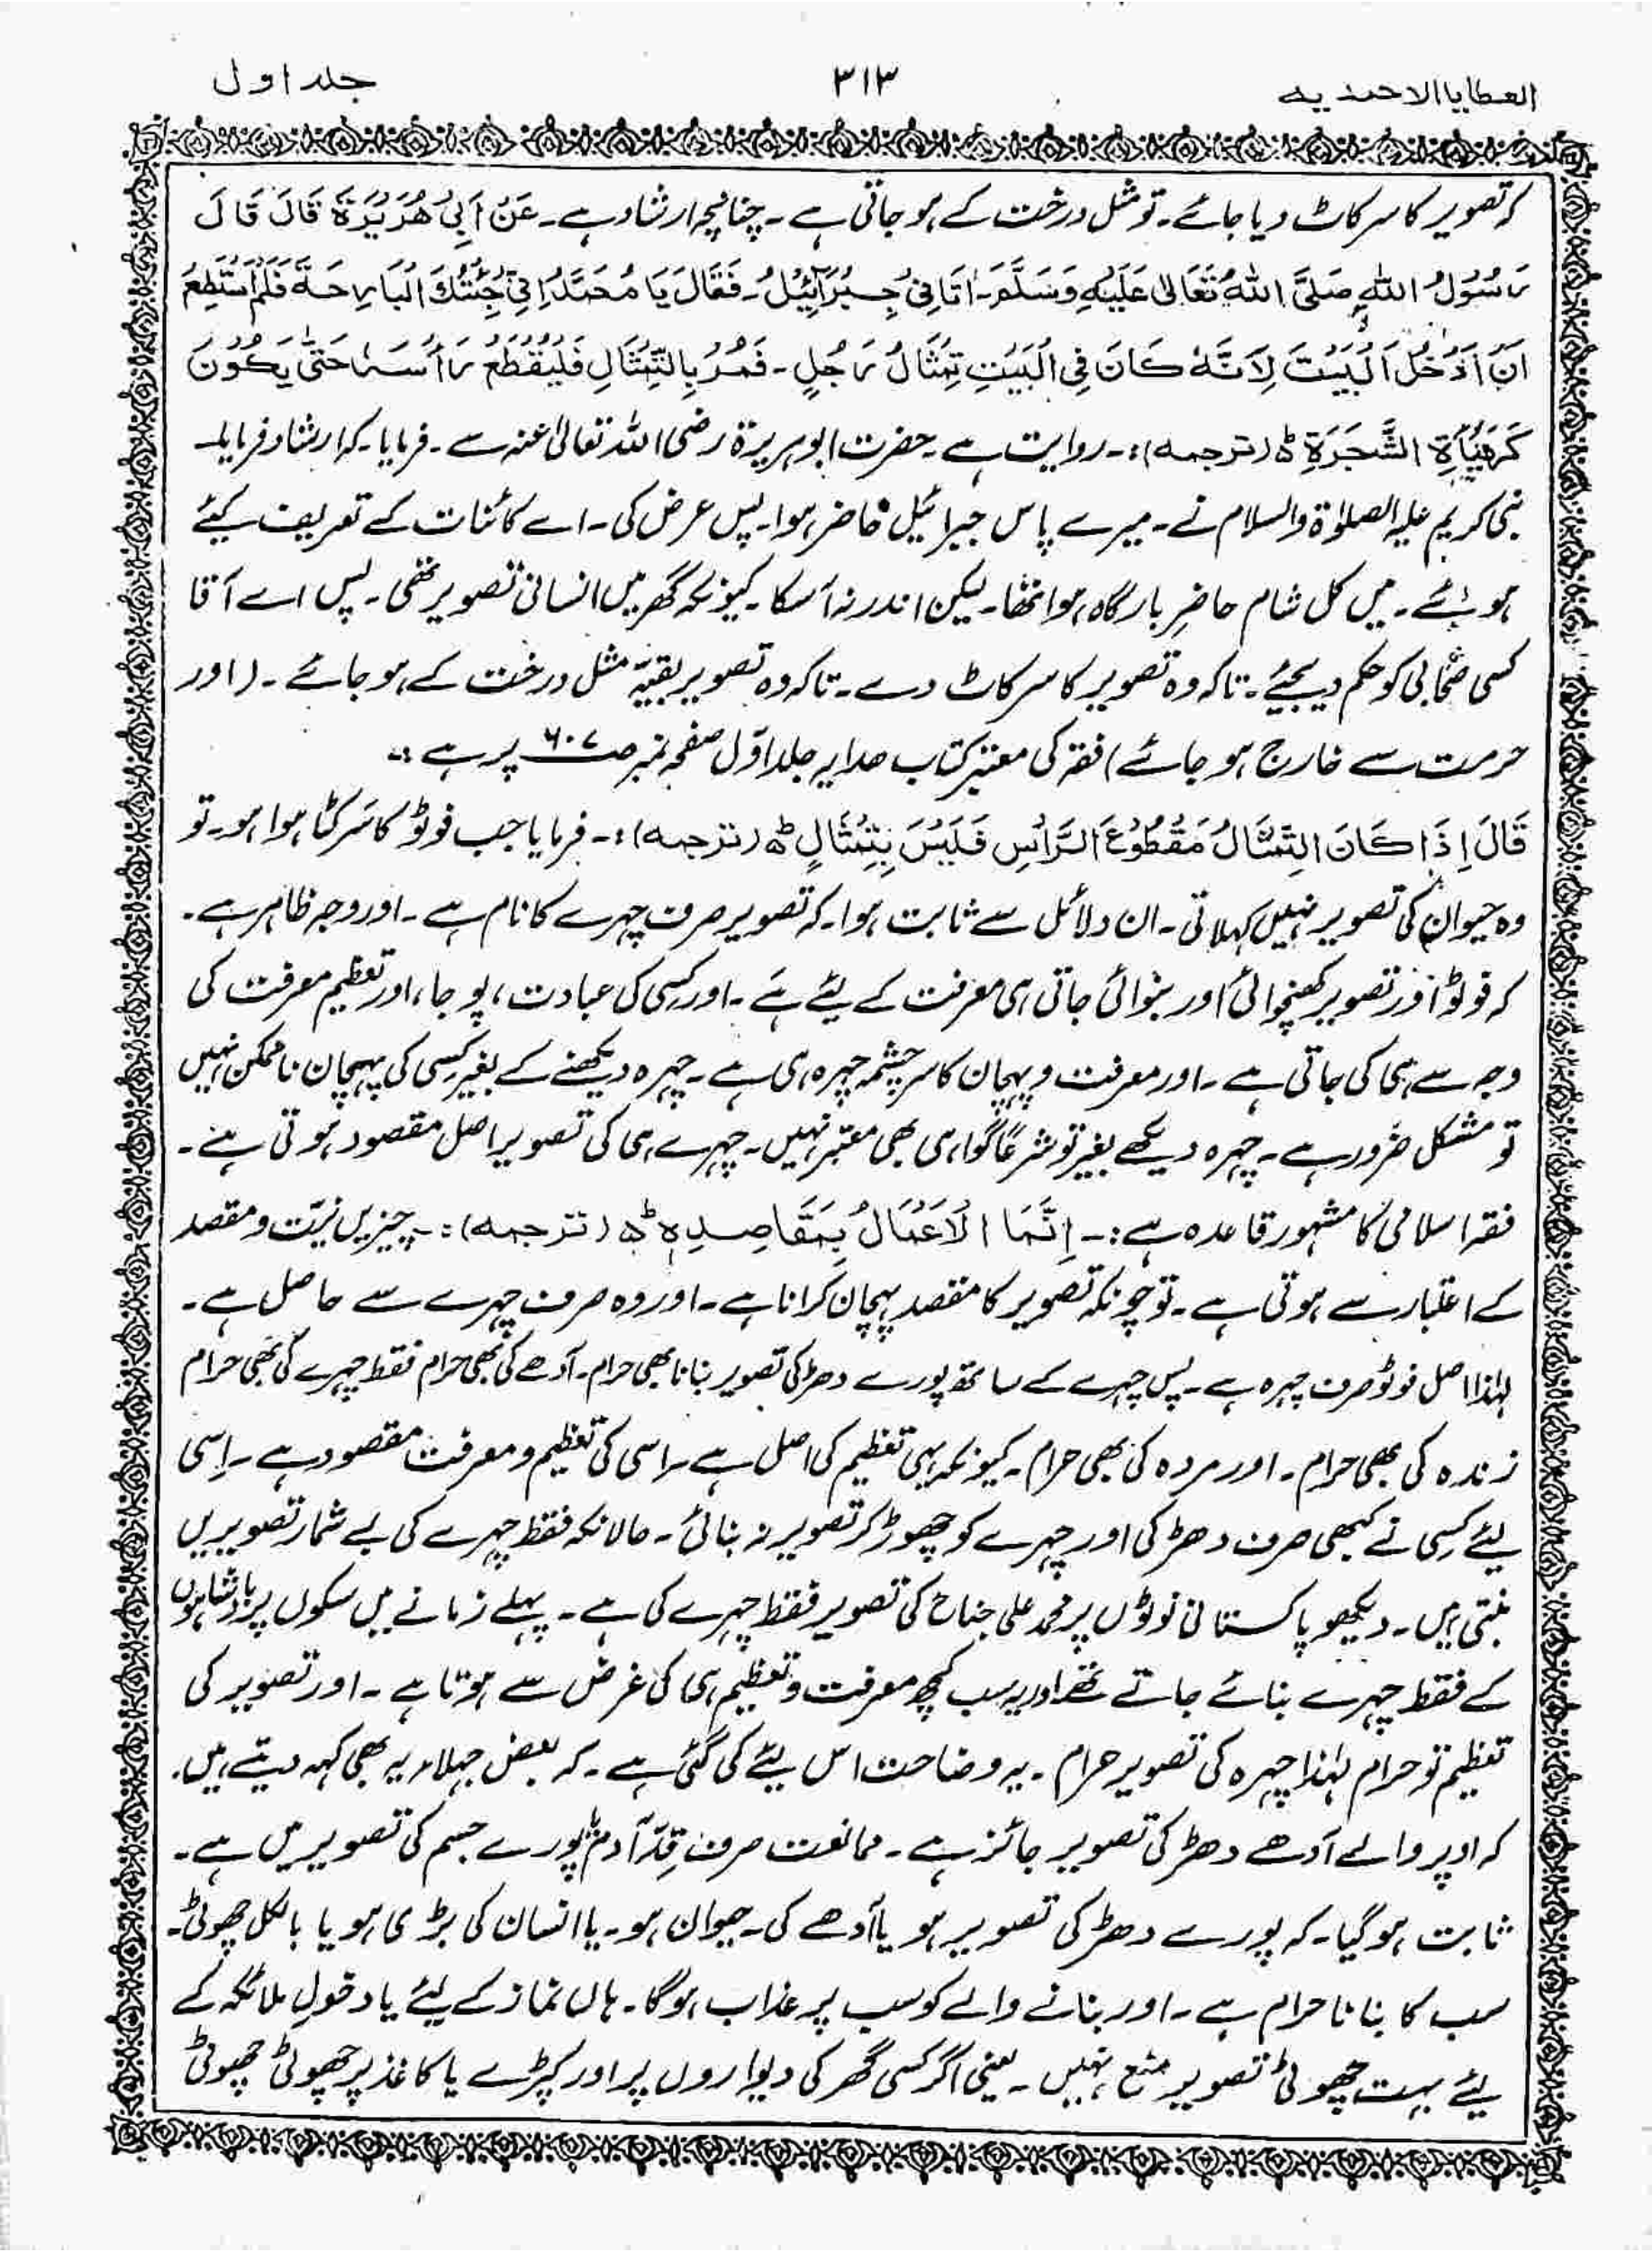 العطایا الاحمدیہ
۳۱۳
جلد اول
کہ تصویر کا سر کاٹ دیا جائے۔ تو مثل درخت کے ہو جاتی ہے۔ چنانچہ ارشاد ہے۔ عَنْ اَبِیْ هُرَیْرَةَ قَالَ قَالَ
رَسُوْلُ اللهِ صَلَّى اللهُ تَعَالٰى عَلَيْهِ وَسَلَّمَ۔ اَتَانِیْ جِبْرَآئِیْلُ۔ فَقَالَ یَا مُحَمَّدُ اِنِّیْ جِئْتُكَ الْبَارِحَةَ فَلَمْ اَسْتَطِعْ
اَنْ اَدْخُلَ الْبَیْتَ لِاَنَّهٗ كَانَ فِی الْبَیْتِ تِمْثَالُ رَجُلٍ۔ فَمُرْ بِالتِّمْثَالِ فَلْیُقْطَعْ رَأْسَہٗ حَتّٰى یَكُوْنَ
كَهَیْأَةِ الشَّجَرَةِ ط (ترجمہ):۔ روایت ہے۔ حضرت ابو ہریرۃ رضی اللہ تعالیٰ عنہ سے۔ فرمایا۔ کہ ارشاد فرمایا۔
نبی کریم علیہ الصلوٰۃ والسلام نے۔ میرے پاس جبرائیل حاضر ہوا۔ پس عرض کی۔ اے کائنات کے تعریف کیئے
ہوئے۔ میں کل شام حاضرِ بارگاہ ہوا تھا۔ لیکن اندر نہ آ سکا۔ کیونکہ گھر میں انسانی تصویر تھی۔ پس اے آقا
کسی صحابی کو حکم دیجیئے۔ تاکہ وہ تصویر کا سر کاٹ دے۔ تاکہ وہ تصویر بقیّہ مثل درخت کے ہو جائے۔ (اور
حرمت سے خارج ہو جائے) فقہ کی معتبر کتاب ھدایہ جلد اوّل صفحہ نمبر صـ۶۰۷ پر ہے :۔
قَالَ اِذَا كَانَ التِّمْثَالُ مَقْطُوْعَ الرَّأْسِ فَلَیْسَ بِتِمْثَالٍ ط (ترجمہ):۔ فرمایا جب فوٹو کا سَر کٹا ہوا ہو۔ تو
وہ حیوان کی تصویر نہیں کہلاتی۔ ان دلائل سے ثابت ہوا۔ کہ تصویر صرف چہرے کا نام ہے۔ اور وجہ ظاہر ہے۔
کہ فوٹو اور تصویر کھنچوائی اور بنوائی جاتی ہی معرفت کے لیئے ہے۔ اور کسی کی عبادت، پوجا، اور تعظیم معرفت کی
وجہ سے ہی کی جاتی ہے۔ اور معرفت و پہچان کا سر چشمہ چہرہ ہی ہے۔ چہرہ دیکھنے کے بغیر کسی کی پہچان ناممکن نہیں
تو مشکل ضرور ہے۔ چہرہ دیکھے بغیر تو شرعًا گواہی بھی معتبر نہیں۔ چہرے ہی کی تصویر اصل مقصود ہوتی ہے۔
فقہ اسلامی کا مشہور قاعدہ ہے:۔ اِنَّمَا الْاَعْمَالُ بِمَقَاصِدِہٖ ط (ترجمہ):۔ چیزیں نیّت و مقصد
کے اعتبار سے ہوتی ہے۔ تو چونکہ تصویر کا مقصد پہچان کرانا ہے۔ اور وہ صرف چہرے سے حاصل ہے۔
لہٰذا اصل فوٹو صرف چہرہ ہے۔ پس چہرے کے ساتھ پورے دھڑ کی تصویر بنانا بھی حرام۔ آدھے کی بھی حرام فقط چہرے کی بھی حرام
زندہ کی بھی حرام۔ اور مردہ کی بھی حرام۔ کیونکہ یہی تعظیم کی اصل ہے۔ اسی کی تعظیم و معرفت مقصود ہے۔ اِسی
لیئے کسی نے کبھی صرف دھڑ کی اور چہرے کو چھوڑ کر تصویر نہ بنائی۔ حالانکہ فقط چہرے کی بے شمار تصویریں
بنتی ہیں۔ دیکھو پاکستانی نوٹوں پر محمد علی جناح کی تصویر فقط چہرے کی ہے۔ پہلے زمانے میں سکوں پر بادشاہوں
کے فقط چہرے بنائے جاتے تھے اور یہ سب کچھ معرفت و تعظیم ہی کی غرض سے ہوتا ہے۔ اور تصویر کی
تعظیم تو حرام لہٰذا چہرہ کی تصویر حرام۔ یہ وضاحت اس لیئے کی گئی ہے۔ کہ بعض جہلاء یہ بھی کہہ دیتے ہیں۔
کہ اوپر والے آدھے دھڑ کی تصویر جائز ہے۔ ممانعت صرف قدِّ آدم پورے جسم کی تصویر میں ہے۔
ثابت ہو گیا۔ کہ پورے دھڑ کی تصویر ہو یا آدھے کی۔ حیوان ہو۔ یا انسان کی بڑی ہو یا بالکل چھوٹی۔
سب کا بنانا حرام ہے۔ اور بنانے والے کو سب پر عذاب ہو گا۔ ہاں نماز کے لیئے یا دخولِ ملائکہ کے
لیئے بہت چھوٹی تصویر منع نہیں۔ یعنی اگر کسی گھر کی دیواروں پر اور کپڑے یا کاغذ پر چھوٹی چھوٹی